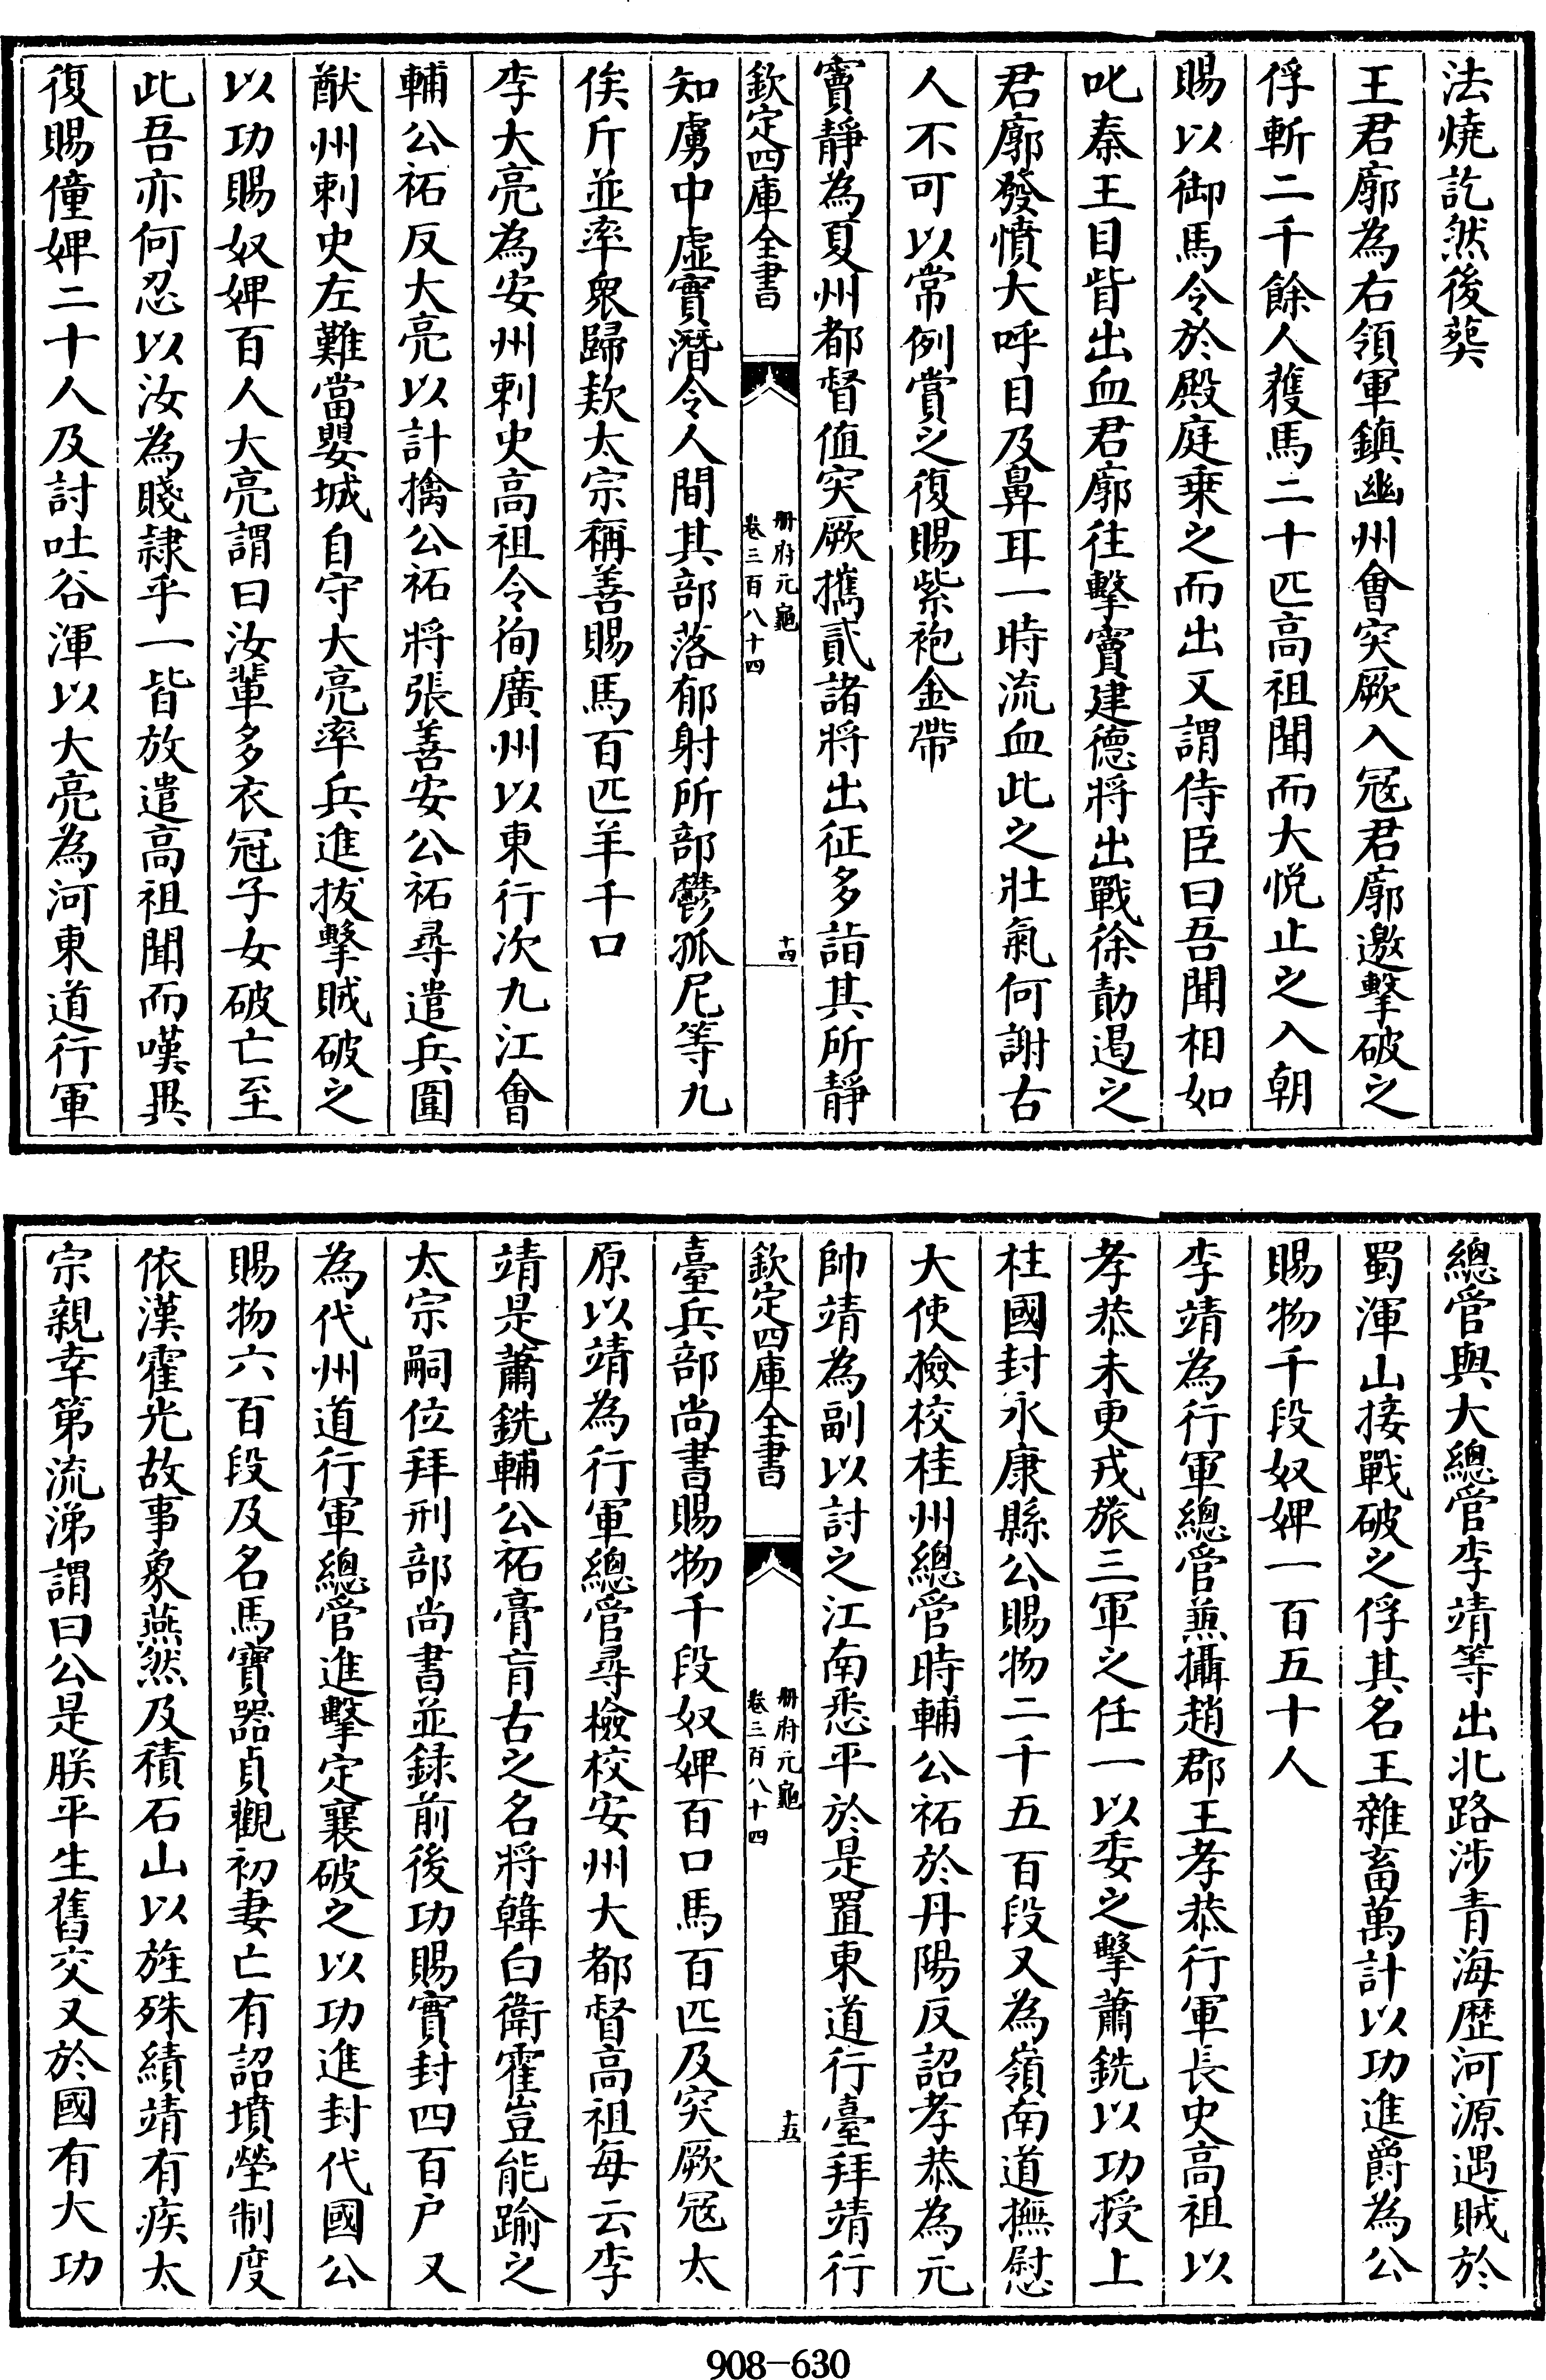 法燒訖然後葬
王君廓為右領軍鎮幽州會突厥入冦君廓邀擊破之
俘斬二千餘人獲馬二十匹高祖聞而大悅止之入朝
賜以御馬令於殿庭乗之而出又謂侍臣曰吾聞相如
叱秦王目眥出血君廓往擊竇建德將出戰徐勣遏之
君廓發憤大呼目及鼻耳一時流血此之壯氣何謝古
人不可以常例賞之復賜紫袍金帶
竇靜為夏州都督值突厥攜貳諸將出征多詣其所靜
欽定四庫全書
冊府元龜
卷三百八十四
十四
知虜中虛實潛令人間其部落郁射所部鬱孤尼等九
俟斤並率衆歸欵太宗稱善賜馬百匹羊千口
李大亮為安州刺史高祖令徇廣州以東行次九江會
輔公祏反大亮以計擒公祏將張善安公祏尋遣兵圍
猷州刺史左難當嬰城自守大亮率兵進拔擊賊破之
以功賜奴婢百人大亮謂曰汝輩多衣冠子女破亡至
此吾亦何忍以汝為賤隷乎一皆放遣高祖聞而嘆異
復賜僮婢二十人及討吐谷渾以大亮為河東道行軍
總管與大總管李靖等出北路涉青海歴河源遇賊於
蜀渾山接戰破之俘其名王雜畜萬計以功進爵為公
賜物千段奴婢一百五十人
李靖為行軍總管兼攝趙郡王孝恭行軍長史高祖以
孝恭未更戎旅三軍之任一以委之擊蕭銑以功授上
柱國封永康縣公賜物二千五百段又為嶺南道撫慰
大使檢校桂州總管時輔公祏於丹陽反詔孝恭為元
帥靖為副以討之江南悉平於是置東道行臺拜靖行
欽定四庫全書
冊府元龜
卷三百八十四
十五
臺兵部尚書賜物千段奴婢百口馬百匹及突厥冦太
原以靖為行軍總管尋檢校安州大都督高祖每云李
靖是蕭銑輔公祏膏肓古之名將韓白衛霍豈能踰之
太宗嗣位拜刑部尚書並録前後功賜實封四百户又
為代州道行軍總管進擊定襄破之以功進封代國公
賜物六百段及名馬寶器貞觀初妻亡有詔墳塋制度
依漢霍光故事象燕然及積石山以旌殊績靖有疾太
宗親幸第流涕謂曰公是朕平生舊交又於國有大功
908-630